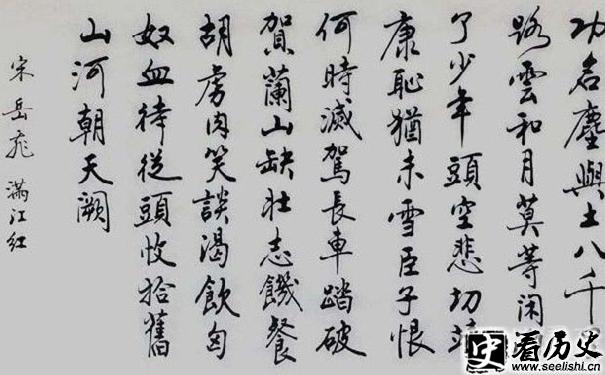 功名塵與土八千
路雲和月莫等闲
了少年頭空悲切靖
康恥猶未雪臣子恨
何時滅駕長車踏破
賀蘭山缺壮志饑餐
胡虏肉笑談渴飲匈
奴血待從頭收拾舊
山河朝天闕
宋岳飛 满江红
史 看历史
www.seelishi.cn